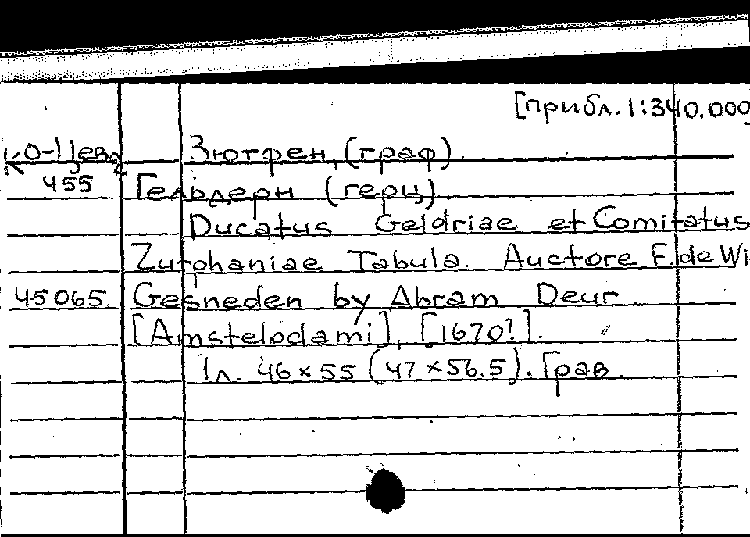 [прибл. 1:340.000
Зютфен, (граф)
455 Гельдерн (герц)
Ducatus Geldriae et Comitatus
Zutphaniae Tabula. Auctore F. de Wi
45065 Gesneden by Abram Deur
[Amstelodami], [1670?].
1 л. 46×55 (47×56.5). Грав.